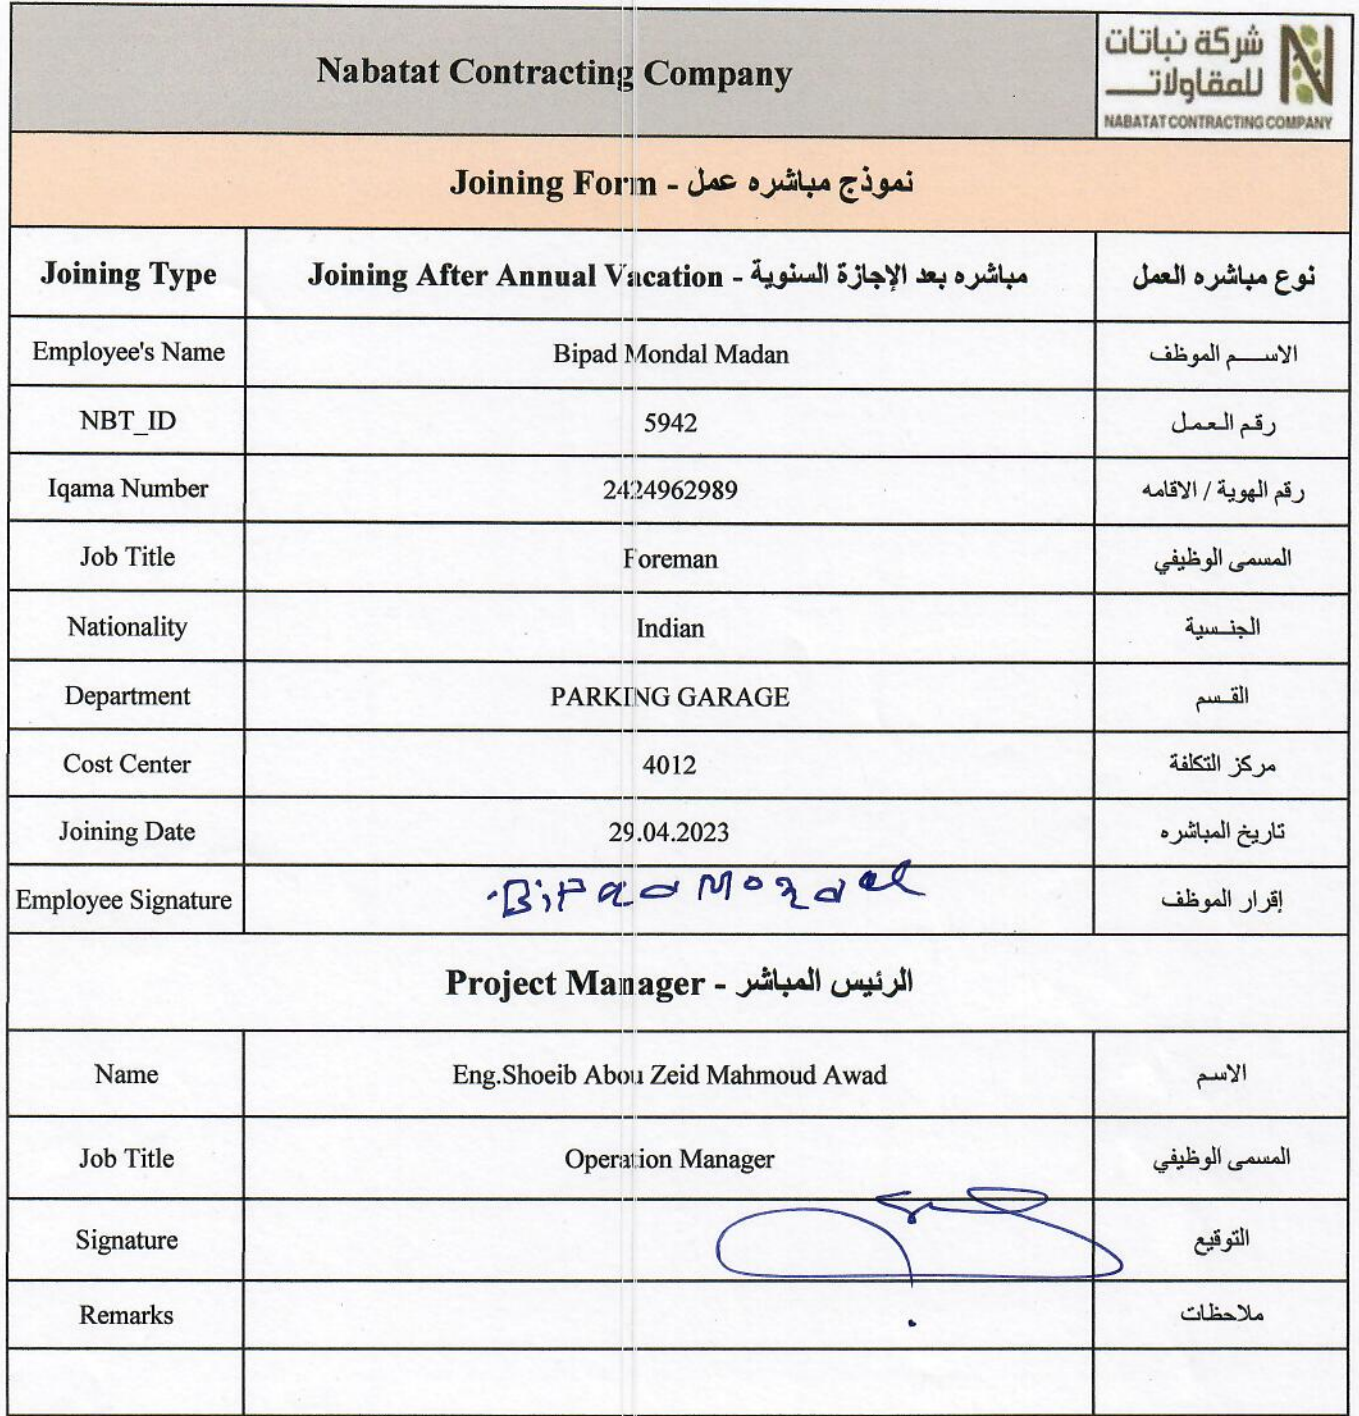 Nabatat Contracting Company
شركة نباتات
للمقاولات
NABATAT CONTRACTING COMPANY
Joining Form - نموذج مباشره عمل
Joining Type Joining After Annual Vacation - مباشره بعد الإجازة السنوية نوع مباشره العمل
Employee's Name Bipad Mondal Madan الاســـم الموظف
NBT_ID 5942 رقم العمل
Iqama Number 2424962989 رقم الهوية / الاقامه
Job Title Foreman المسمى الوظيفي
Nationality Indian الجنـسية
Department PARKING GARAGE القـسم
Cost Center 4012 مركز التكلفة
Joining Date 29.04.2023 تاريخ المباشره
Employee Signature Bipad Mondal إقرار الموظف
Project Manager - الرئيس المباشر
Name Eng.Shoeib Abou Zeid Mahmoud Awad الاسم
Job Title Operation Manager المسمى الوظيفي
Signature التوقيع
Remarks ملاحظات